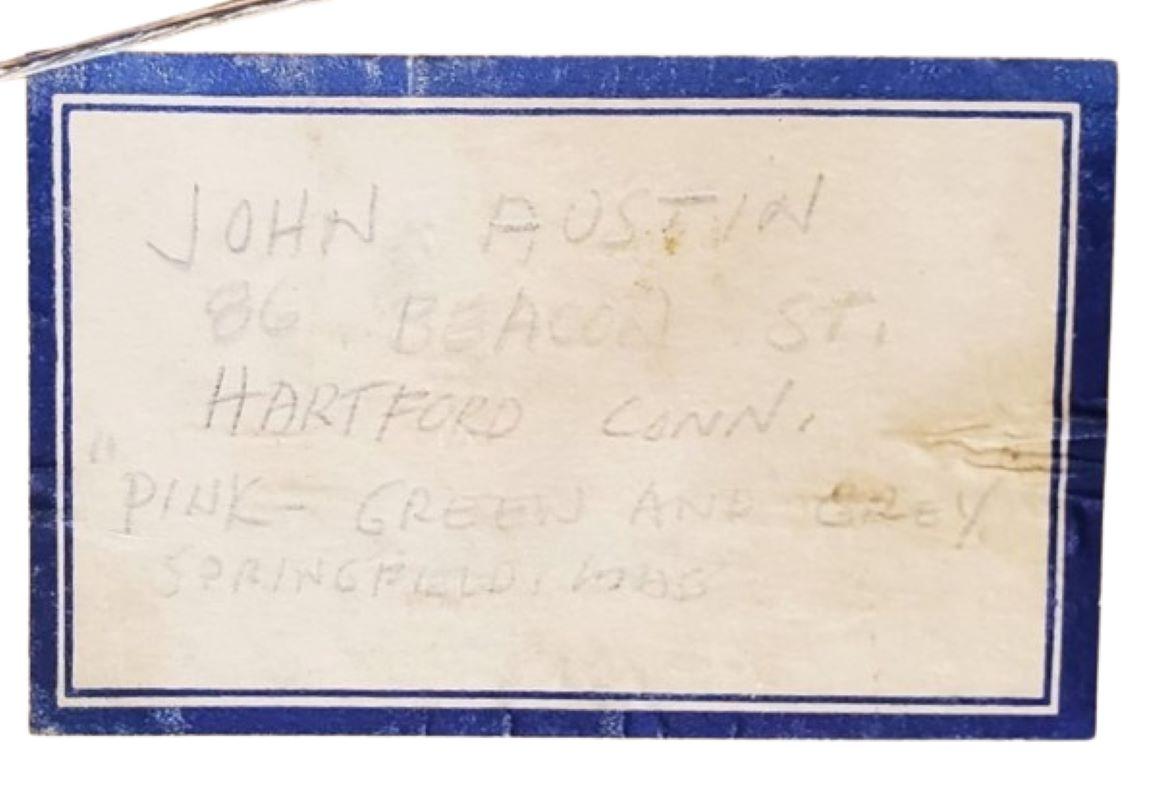 JOHN AUSTIN
86 BEACON ST.
HARTFORD CONN.
"PINK - GREEN AND GREY
SPRINGFIELD.